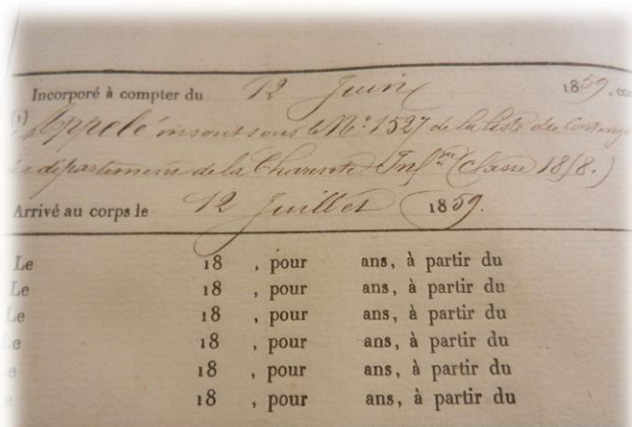 Incorporé à compter du 12 Juin 1859.
(1) Appelé inscrit sous le N° 1527 de la liste du Conting
du département de la Charente Inf.re (classe 1858.)
Arrivé au corps le 12 Juillet 1859.
Le 18 , pour ans, à partir du
Le 18 , pour ans, à partir du
Le 18 , pour ans, à partir du
Le 18 , pour ans, à partir du
e 18 , pour ans, à partir du
18 , pour ans, à partir du